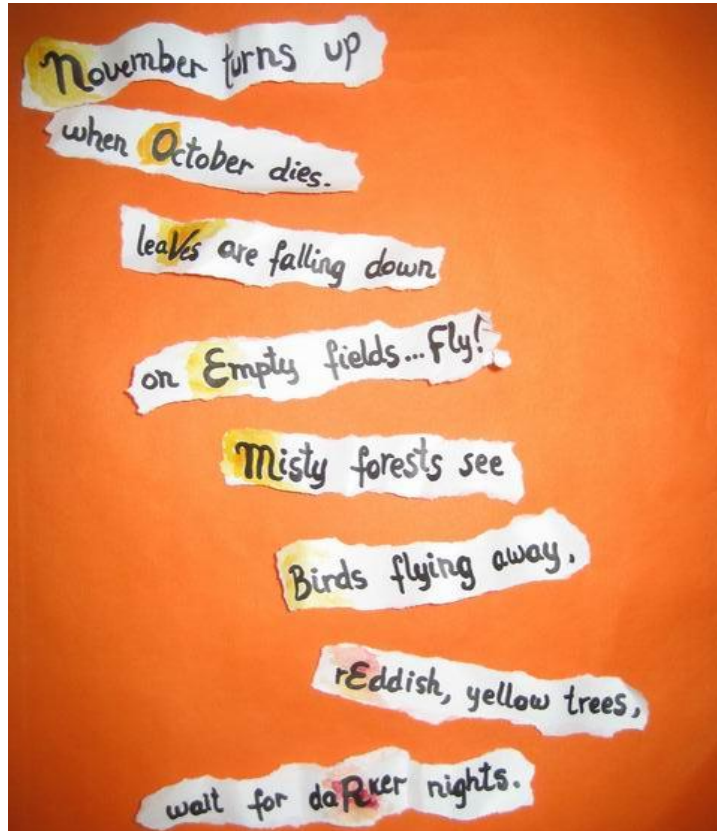 November turns up
when October dies.
leaVes are falling down
on Empty fields... Fly!
Misty forests see
Birds flying away,
rEddish, yellow trees,
wait for daRker nights.